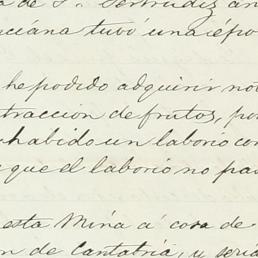 a de S. Gertrudiz an
ciána tubó una épo
he podido adquirir not
tracción de frutos, po
habido un laborio con
que el laborio no pa
esta Mina á cosa de
n de Cantabria, y seria